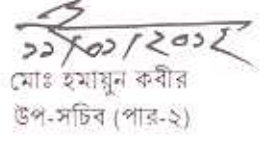 ১১/০১/২০১২
মোঃ হুমায়ুন কবীর
উপ-সচিব (পার-২)